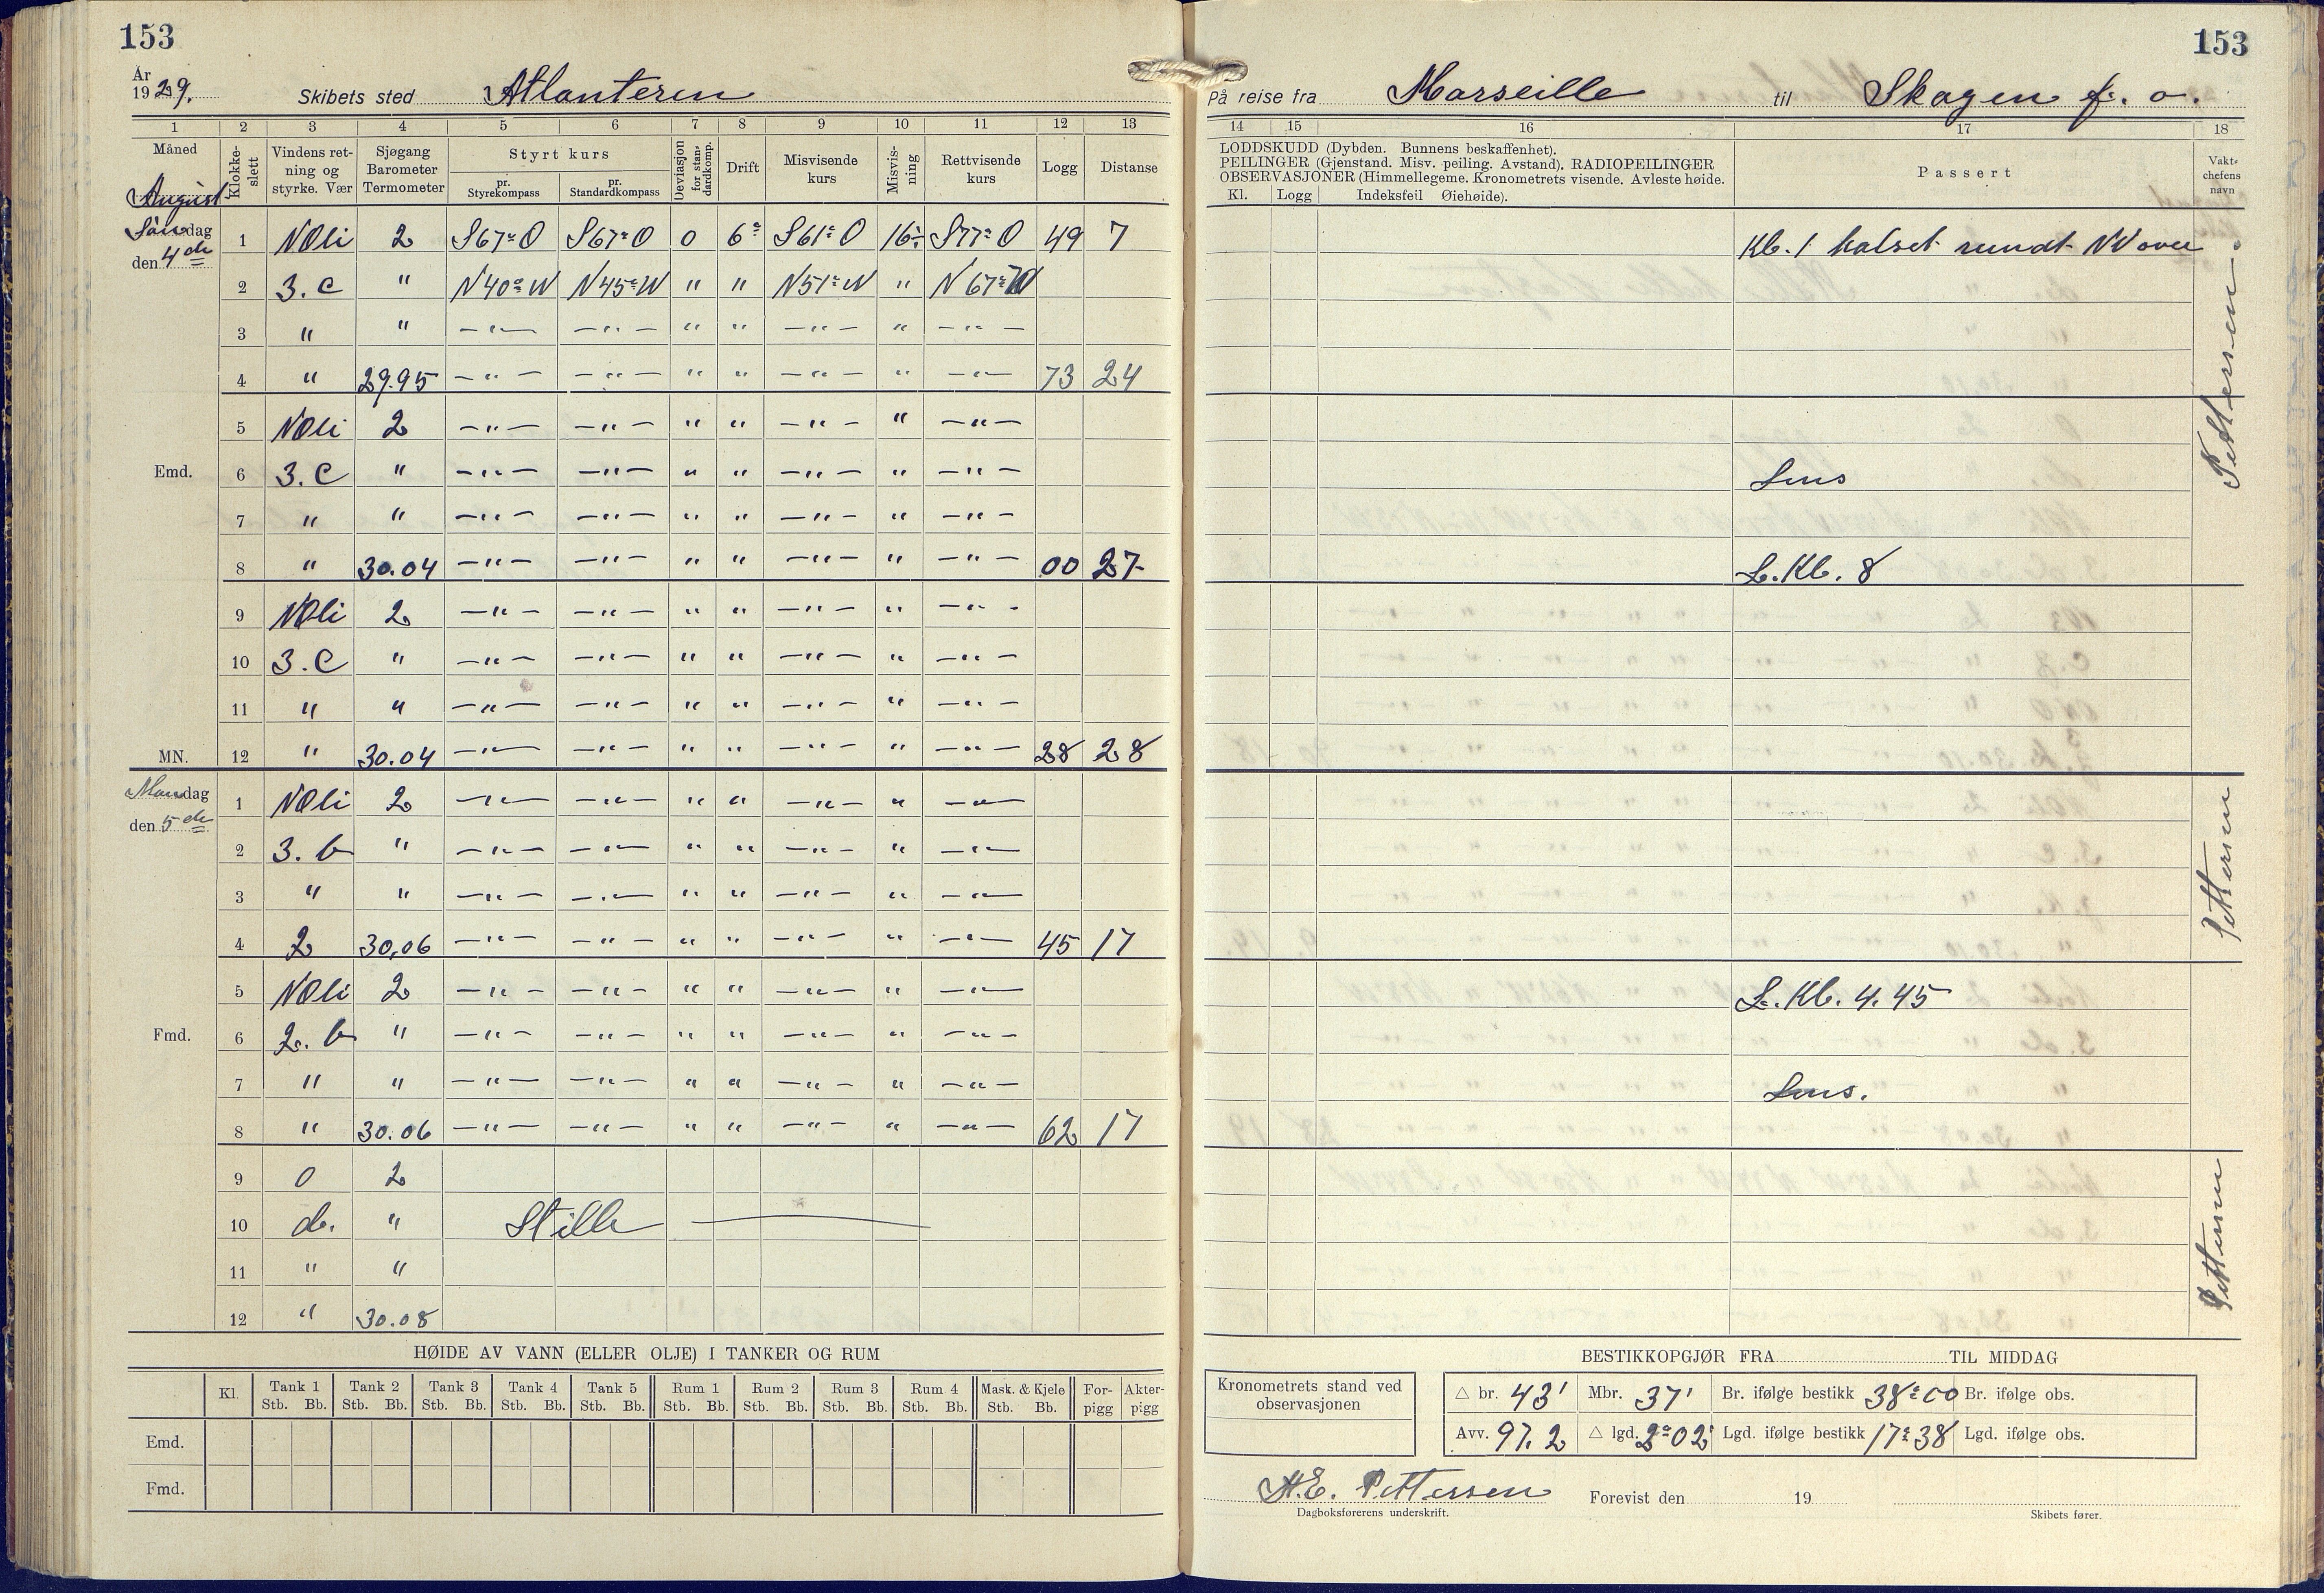 153
År
1929. Skibets sted Atlanteren
1 2 3 4 5 6 7 8 9 10 11 12 13
Måned Klokkeslett Vindens retning og styrke. Vær Sjøgang Barometer Termometer Styrt kurs pr. Styrekompass pr. Standardkompass Deviasjon for standardkomp. Drift Misvisende kurs Misvisning Rettvisende kurs Logg Distanse
August
Søndag 1 NOli 2 S67°O S67°O 0 6° S61°O 16° S77°O 49 7
den 4de 2 3. C " N40°W N45°W " " N51°W " N67°W
3 " " —"— —"— " " —"— " —"—
4 " 29.95 —"— —"— " " —"— " —"— 73 24
5 NOli 2 —"— —"— " " —"— " —"—
Emd. 6 3. C " —"— —"— " " —"— " —"—
7 " " —"— —"— " " —"— " —"—
8 " 30.04 —"— —"— " " —"— " —"— 00 27
9 NOli 2 —"— —"— " " —"— " —"—
10 3. C " —"— —"— " " —"— " —"—
11 " " —"— —"— " " —"— " —"—
MN. 12 " 30.04 —"— —"— " " —"— " —"— 28 28
Mandag 1 NOli 2 —"— —"— " " —"— " —"—
den 5de 2 3. b " —"— —"— " " —"— " —"—
3 " " —"— —"— " " —"— " —"—
4 2 30.06 —"— —"— " " —"— " —"— 45 17
5 NOli 2 —"— —"— " " —"— " —"—
Fmd. 6 2. b " —"— —"— " " —"— " —"—
7 " " —"— —"— " " —"— " —"—
8 " 30.06 —"— —"— " " —"— " —"— 62 17
9 0 2
10 d. " Stille
11 " "
12 " 30.08
HØIDE AV VANN (ELLER OLJE) I TANKER OG RUM
Kl. Tank 1 Tank 2 Tank 3 Tank 4 Tank 5 Rum 1 Rum 2 Rum 3 Rum 4 Mask. & Kjele For-pigg Akter-pigg
Stb. Bb. Stb. Bb. Stb. Bb. Stb. Bb. Stb. Bb. Stb. Bb. Stb. Bb. Stb. Bb. Stb. Bb. Stb. Bb.
Emd.
Fmd.
153
På reise fra Marseille til Skagen f. o.
14 15 16 17 18
LODDSKUDD (Dybden. Bunnens beskaffenhet).
PEILINGER (Gjenstand. Misv. peiling. Avstand). RADIOPEILINGER
OBSERVASJONER (Himmellegeme. Kronometrets visende. Avleste høide.
Kl. Logg Indeksfeil Øiehøide).
Passert
Vaktchefens navn
Kl. 1 halset rundt NV over
Pettersen
Lens
L. Kl. 8
Pettersen
L. Kl. 4.45
Lens.
Pettersen
BESTIKKOPGJØR FRA TIL MIDDAG
Kronometrets stand ved observasjonen
△ br. 43' Mbr. 37' Br. ifølge bestikk 38°00 Br. ifølge obs.
Avv. 97.2 △ lgd. 2°02' Lgd. ifølge bestikk 17°38 Lgd. ifølge obs.
H.E. Pettersen Forevist den 19
Dagboksførerens underskrift. Skibets fører.